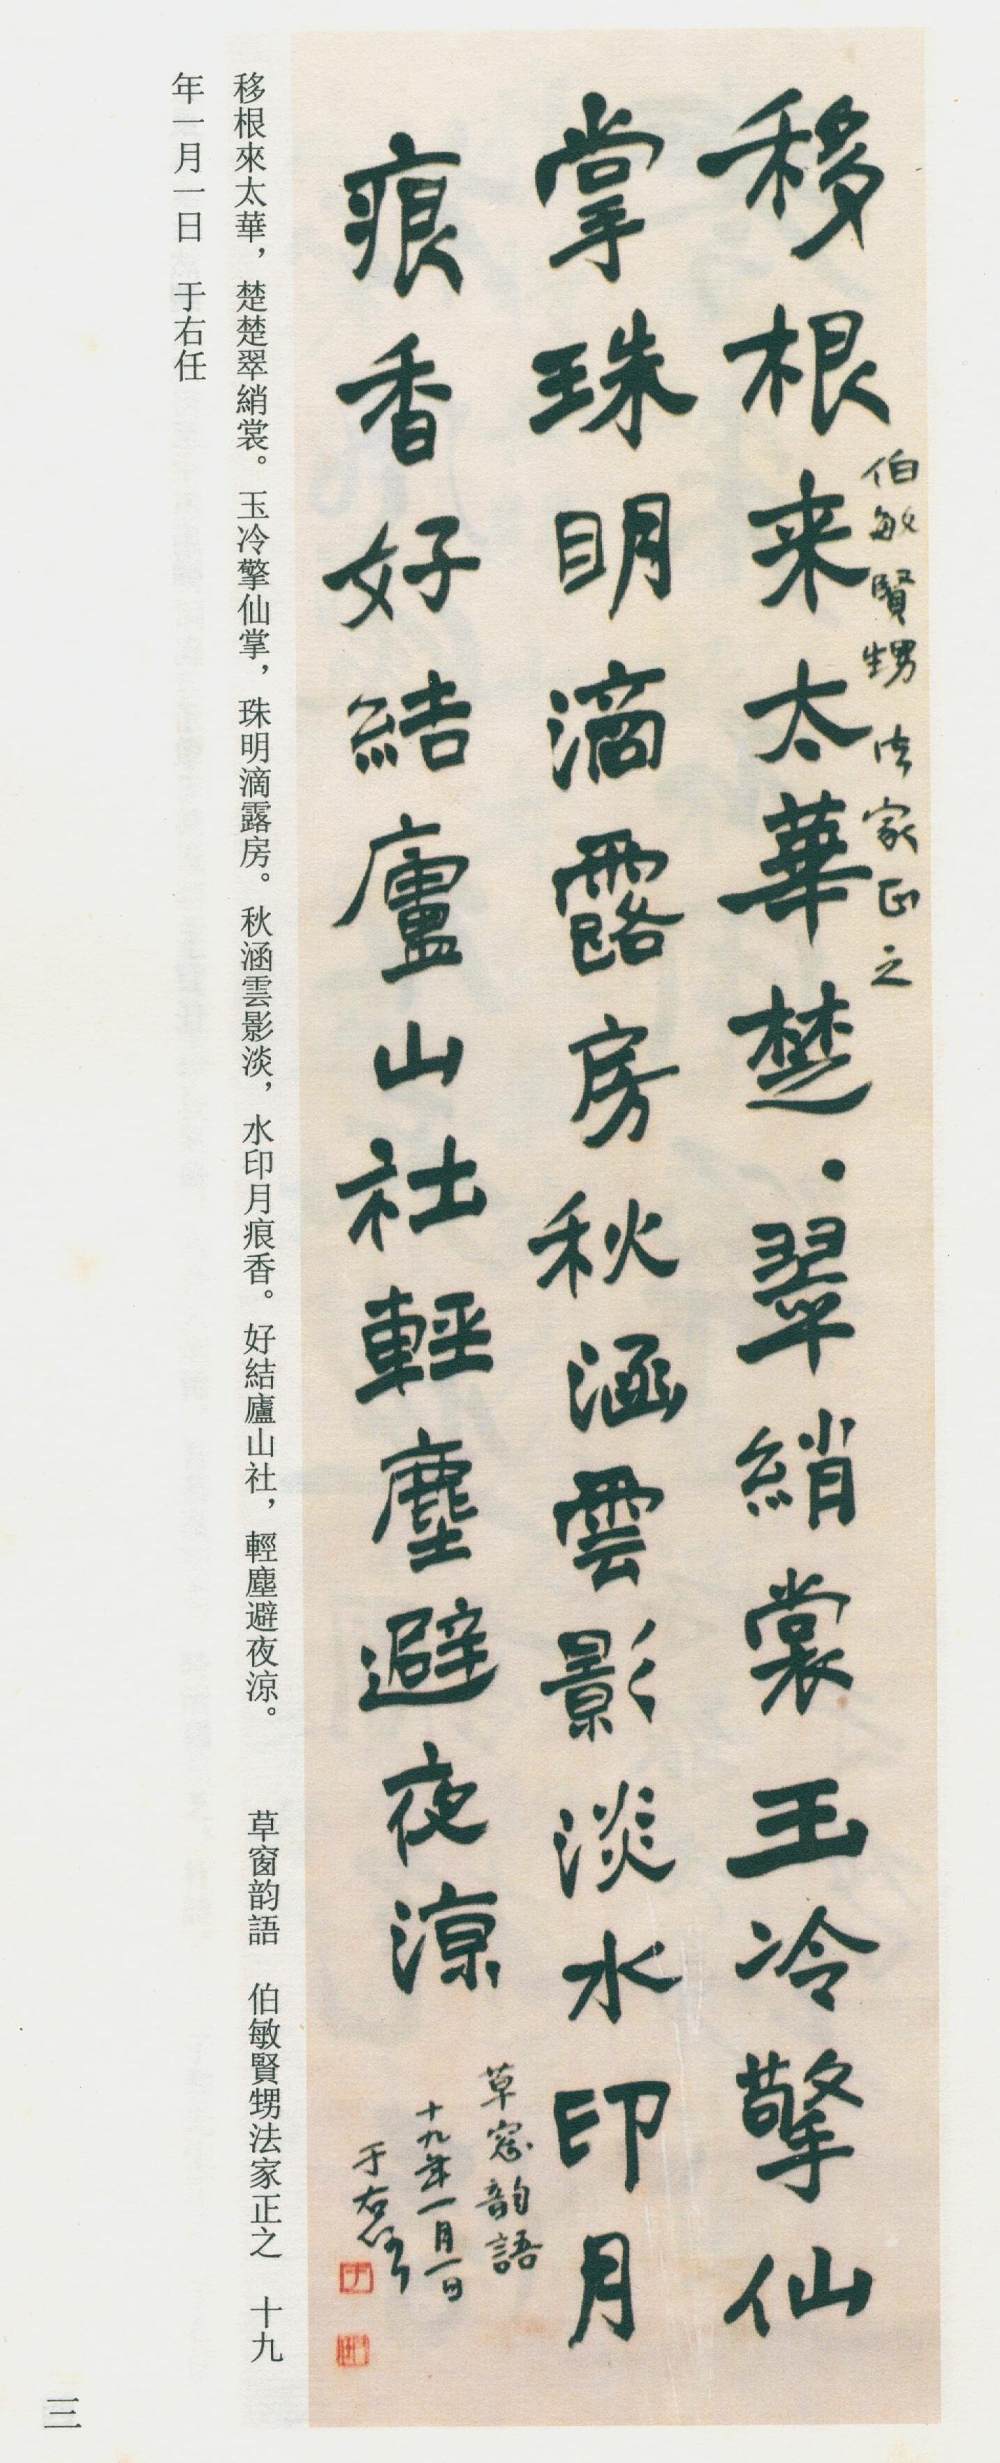 伯敏賢甥法家正之
移根来太華楚〻翠綃裳玉冷擎仙
掌珠眀滴露房秋涵雲影淡水印月
痕香好結廬山社輕塵避夜涼
草窓韵語
十九年一月一日
于右任
移根來太華，楚楚翠綃裳。玉冷擎仙掌，珠明滴露房。秋涵雲影淡，水印月痕香。好結廬山社，輕塵避夜涼。　草窗韵語　伯敏賢甥法家正之　十九
年一月一日　于右任
三